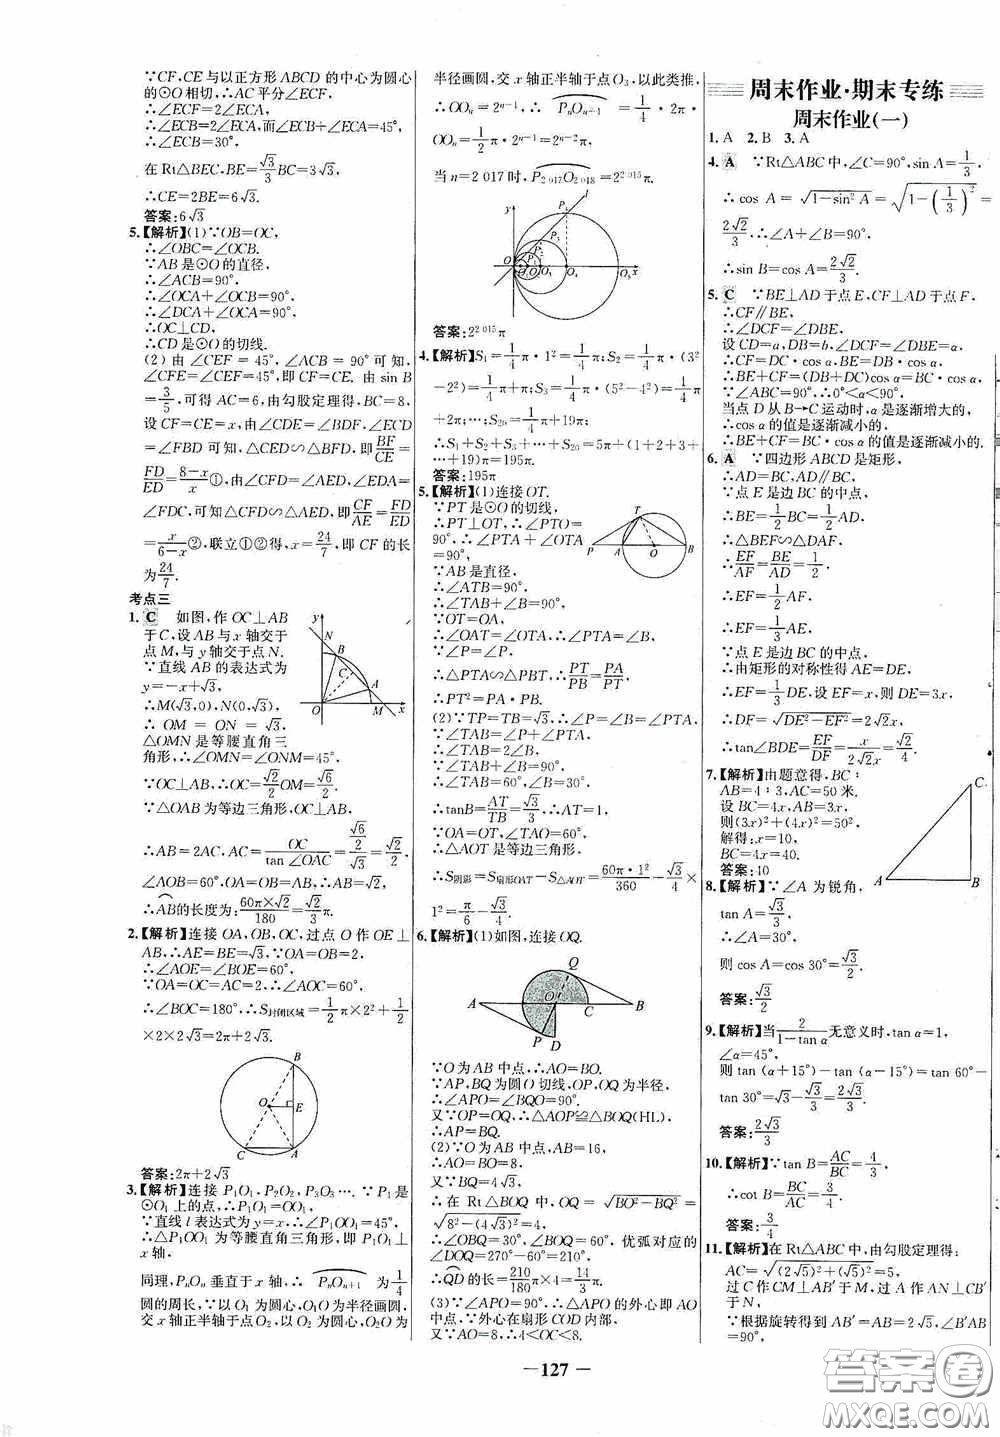 ∵CF,CE与以正方形ABCD的中心为圆心
的⊙O相切,∴AC平分∠ECF.
∴∠ECF=2∠ECA,
∴∠ECB=2∠ECA,而∠ECB+∠ECA=45°,
∴∠ECB=30°.
在Rt△BEC,BE=√3/3BC=3√3.
∴CE=2BE=6√3.
答案:6√3
5.【解析】(1)∵OB=OC,
∴∠OBC=∠OCB.
∵AB是⊙O的直径,
∴∠ACB=90°,
∴∠OCA+∠OCB=90°,
∴∠DCA+∠OCA=90°.
∴OC⊥CD,
∴CD是⊙O的切线.
(2)由∠CEF=45°,∠ACB=90°可知,
∠CFE=∠CEF=45°,即CF=CE.由sin B
=3/5,可得AC=6,由勾股定理得,BC=8,
设CF=CE=x,由∠CDE=∠BDF,∠ECD
=∠FBD可知,△ECD∽△BFD.由BF/CE=
FD/ED=8-x/x①,由∠CFD=∠AED,∠EDA=
∠FDC,可知△CFD∽△AED,即CF/AE=FD/ED
=x/6-x②,联立①②得,x=24/7,即CF的长
为24/7.
考点三
1. C 如图,作OC⊥AB
于C,设AB与x轴交于
点M,与y轴交于点N.
∵直线AB的表达式为
y=-x+√3,
∴M(√3,0),N(0,√3),
∴OM=ON=√3,
△OMN是等腰直角三
角形,∴∠OMN=∠ONM=45°.
∵OC⊥AB,∴OC=√2/2OM=√6/2.
∵△OAB为等边三角形,OC⊥AB,
∴AB=2AC,AC=OC/tan∠OAC=(√6/2)/√3=√2/2,
∠AOB=60°,OA=OB=AB,∴AB=√2,
∴AB的长度为:60π×√2/180=√2/3π.
2.【解析】连接OA,OB,OC,过点O作OE⊥
AB,∴AE=BE=√3,∵OA=OB=2.
∴∠AOE=∠BOE=60°.
∵OA=OC=AC=2,∴∠AOC=60°,
∴∠BOC=180°,∴S封闭区域=1/2π×2²+1/2
×2×2√3=2π+2√3.
B
O
E
C
A
答案:2π+2√3
3.【解析】连接P₁O₁,P₂O₂,P₃O₃….∵P₁是
⊙O₁上的点,∴P₁O₁=OO₁,
∵直线l表达式为y=x,∴∠P₁OO₁=45°,
∴△P₁OO₁为等腰直角三角形,即P₁O₁⊥
x轴,
同理,PₙOₙ垂直于x轴,∴PₙOₙ₊₁为1/4
圆的周长,∵以O₁为圆心,O₁O为半径画圆,
交x轴正半轴于点O₂,以O₂为圆心,O₂O为
半径画圆,交x轴正半轴于点O₃,以此类推,
∴OOₙ=2ⁿ⁻¹,∴PₙOₙ₊₁=1/4·2π·
OOₙ=1/2π·2ⁿ⁻¹=2ⁿ⁻²π,
当n=2 017时,P₂₀₁₇O₂₀₁₈=2²⁰¹⁵π.
答案:2²⁰¹⁵π
4.【解析】S₁=1/4π·1²=1/4π;S₂=1/4π·(3²
-2²)=1/4π+π;S₃=1/4π·(5²-4²)=1/4π
+2π;…;S₂₀=1/4π+19π;
∴S₁+S₂+S₃+…+S₂₀=5π+(1+2+3+
…+19)π=195π.
答案:195π
5.【解析】(1)连接OT.
∵PT是⊙O的切线,
∴PT⊥OT,∴∠PTO=
90°,∴∠PTA+∠OTA
=90°,
∵AB是直径,
∴∠ATB=90°,
∴∠TAB+∠B=90°,
∵OT=OA,
∴∠OAT=∠OTA,∴∠PTA=∠B,
∵∠P=∠P,
∴△PTA∽△PBT,∴PT/PB=PA/PT,
∴PT²=PA·PB.
(2)∵TP=TB=√3,∴∠P=∠B=∠PTA,
∵∠TAB=∠P+∠PTA,
∴∠TAB=2∠B,
∵∠TAB+∠B=90°,
∴∠TAB=60°,∠B=30°,
∴tanB=AT/TB=√3/3,∴AT=1.
∵OA=OT,∠TAO=60°,
∴△AOT是等边三角形,
∴S阴影=S扇形OAT-S△AOT=60π·1²/360-√3/4×
1²=π/6-√3/4.
6.【解析】(1)如图,连接OQ.
∵O为AB中点,∴AO=BO.
∵AP,BQ为圆O切线,PO,QO为半径,
∴∠APO=∠BQO=90°,
又∵OP=OQ,∴△AOP≌△BOQ(HL),
∴AP=BQ.
(2)∵O为AB中点,AB=16,
∴AO=BO=8,
又∵BQ=4√3,
∴在Rt△BOQ中,OQ=√BO²-BQ²=
√8²-(4√3)²=4,
∴∠OBQ=30°,∠BOQ=60°,优弧对应的
∠DOQ=270°-60°=210°,
∴QD的长=210/180π·4=14/3π.
(3)∵∠APO=90°,∴△APO的外心即AO
中点,∵外心在扇形COD内部,
又∵AO=8,∴4<OC<8.
周末作业·期末专练
周末作业(一)
1. A 2. B 3. A
4. A ∵Rt△ABC中,∠C=90°,sin A=1/3,
∴cos A=√1-sin²A=√1-(1/3)²=
2√2/3.∴∠A+∠B=90°,
∴sin B=cos A=2√2/3.
5. C ∵BE⊥AD于点E,CF⊥AD于点F,
∴CF∥BE,
∴∠DCF=∠DBE,
设CD=a,DB=b,∠DCF=∠DBE=α,
∴CF=DC·cos α,BE=DB·cos α,
∴BE+CF=(DB+DC)cos α=BC·cos α.
∵∠ABC=90°,∴0°<α<90°,
当点D从B→C运动时,α是逐渐增大的,
∴cos α的值是逐渐减小的,
∴BE+CF=BC·cos α的值是逐渐减小的.
6. A ∵四边形ABCD是矩形,
∴AD=BC,AD∥BC,
∵点E是边BC的中点,
∴BE=1/2BC=1/2AD,
∴△BEF∽△DAF.
∴EF/AF=BE/AD=1/2,
∴EF=1/2AF,
∴EF=1/3AE,
∵点E是边BC的中点,
∴由矩形的对称性得AE=DE,
∴EF=1/3DE,设EF=x,则DE=3x,
∴DF=√DE²-EF²=2√2x,
∴tan∠BDE=EF/DF=x/2√2x=√2/4.
7.【解析】由题意得,BC:
AB=4:3,AC=50米.
设BC=4x,AB=3x,
则(3x)²+(4x)²=50²,
解得:x=10,
BC=4x=40.
答案:10
8.【解析】∵∠A为锐角,
tan A=√3/3,
∴∠A=30°,
则cos A=cos 30°=√3/2.
答案:√3/2
9.【解析】当2/1-tan α无意义时,tan α=1,
∠α=45°,
则tan(α+15°)-tan(α-15°)=tan 60°-
tan 30°=√3-√3/3=2√3/3.
答案:2√3/3
10.【解析】∵tan B=AC/BC=4/3,
∴cot B=BC/AC=3/4.
答案:3/4
11.【解析】在Rt△ABC中,由勾股定理得:
AC=√(2√5)²+(√5)²=5,
过C作CM⊥AB′于M,过A作AN⊥CB′
于N,
∵根据旋转得到AB′=AB=2,∠B′=∠B
=90°,
127
答案卷
MXQE.COM